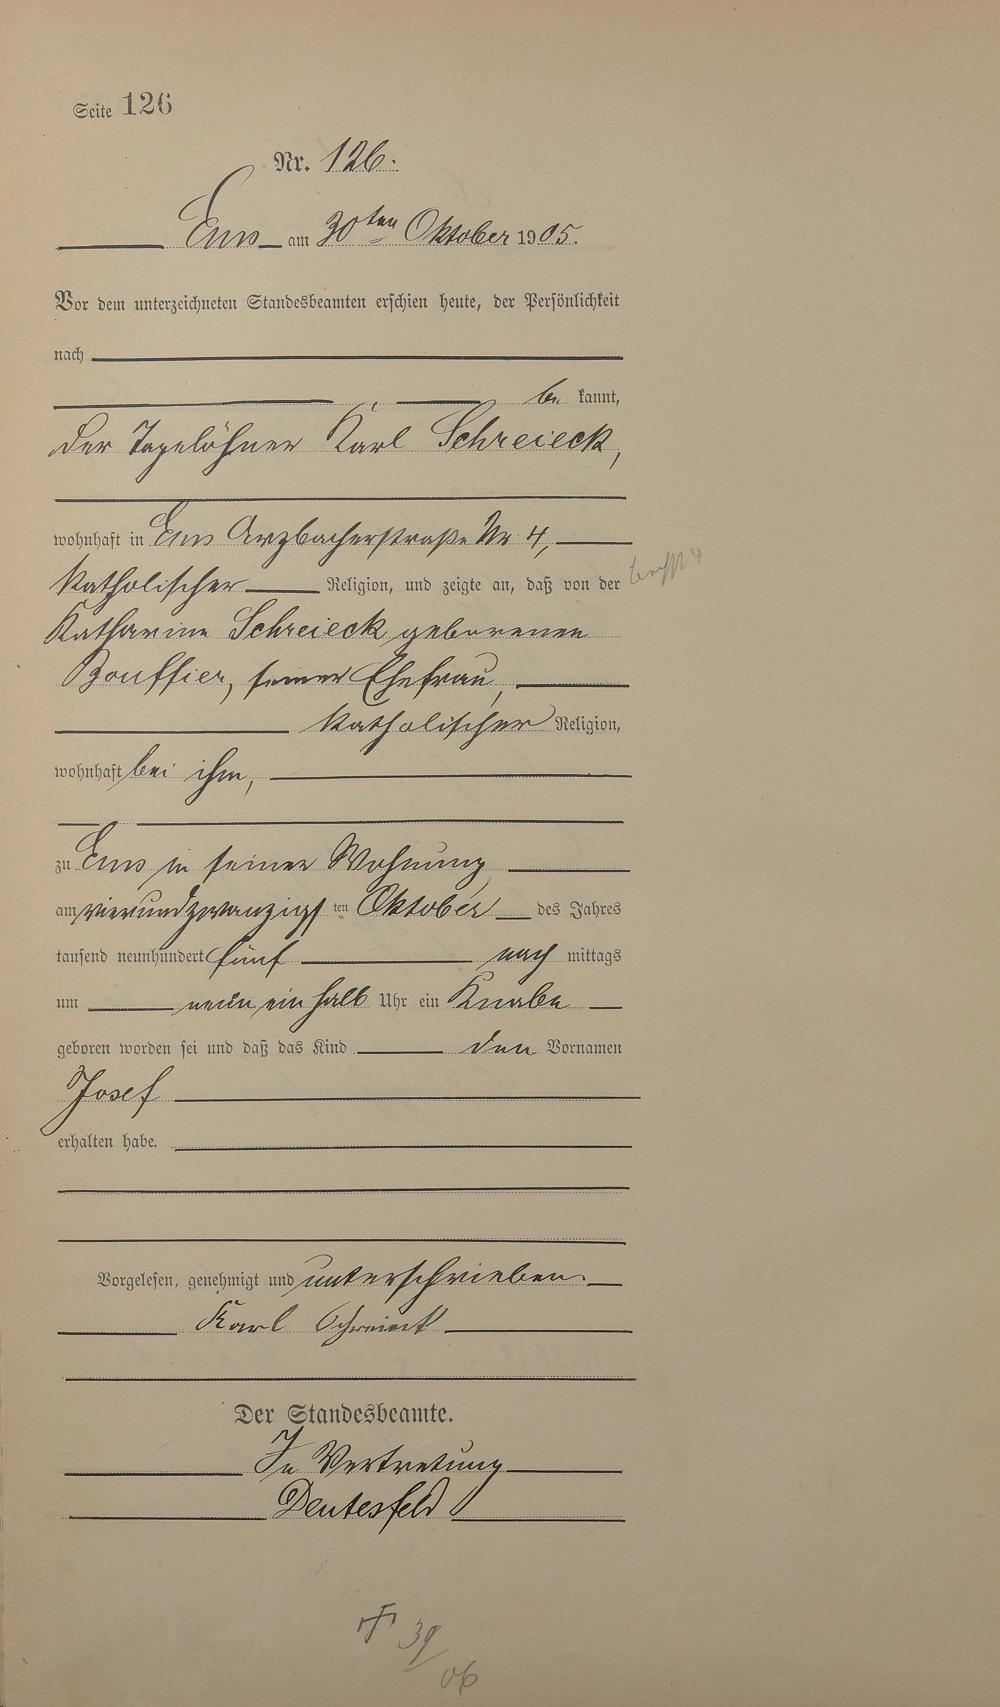 Seite 126
Nr. 126.
Ems am 30ten Oktober 1905.
Vor dem unterzeichneten Standesbeamten erschien heute, der Persönlichkeit
nach
be kannt,
der Tagelöhner Karl Schreieck,
wohnhaft in Ems Arzbacherstraße Nr 4,
katholischer Religion, und zeigte an, daß von der
Katharine Schreieck geborenen
Bouffier, seiner Ehefrau,
katholischer Religion,
wohnhaft bei ihm,
zu Ems in seiner Wohnung
am vierundzwanzigsten Oktober des Jahres
tausend neunhundert fünf nach mittags
um neun ein halb Uhr ein Knabe
geboren worden sei und daß das Kind den Vornamen
Josef
erhalten habe.
Vorgelesen, genehmigt und unterschrieben.
Karl Schreieck
Der Standesbeamte.
In Vertretung
Deutesfeld
† 39
06